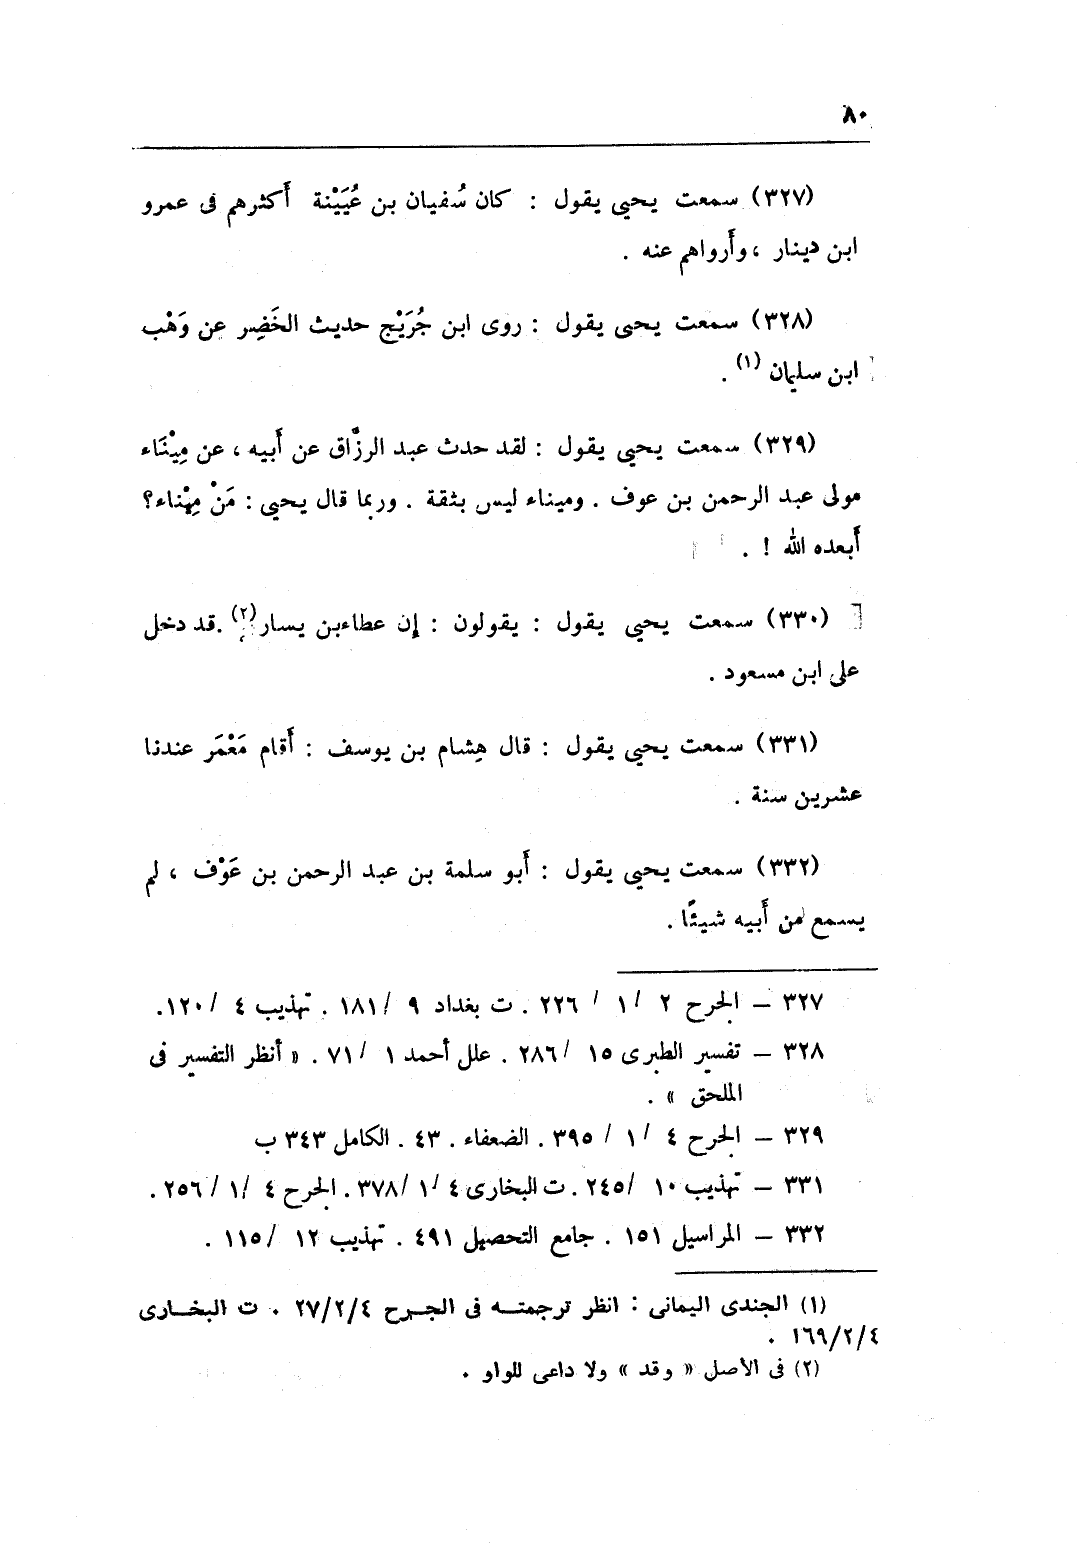 ٨٠
(٣٢٧) سمعت يحيى يقول : كان سُفيان بن عُيَيْنة أَكثرهم فى عمرو
ابن دينار ، وأَرواهم عنه .
(٣٢٨) سمعت يحيى يقول : روى ابن جُرَيْج حديث الخَضِر عن وَهْب
ابن سليمان (١) .
(٣٢٩) سمعت يحيى يقول : لقد حدث عبد الرزَّاق عن أَبيه ، عن مِيْنَاء
مولى عبد الرحمن بن عوف . وميناء ليس بثقة . وربما قال يحيى : مَنْ مِيْناء؟
أَبعده الله ! .
(٣٣٠) سمعت يحيى يقول : يقولون : إن عطاءبن يسار(٢) .قد دخل
على ابن مسعود .
(٣٣١) سمعت يحيى يقول : قال هِشام بن يوسف : أَقام مَعْمَر عندنا
عشرين سنة .
(٣٣٢) سمعت يحيى يقول : أَبو سلمة بن عبد الرحمن بن عَوْف ، لم
يسمع من أَبيه شيئًا .
٣٢٧ – الجرح ٢ /١ /٢٢٦ . ت بغداد ٩ /١٨١ . تهذيب ٤ /١٢٠.
٣٢٨ – تفسير الطبرى ١٥ /٢٨٦ . علل أحمد ١ /٧١ . « أنظر التفسير فى
الملحق » .
٣٢٩ – الجرح ٤ /١ /٣٩٥ . الضعفاء . ٤٣ . الكامل ٣٤٣ ب
٣٣١ – تهذيب ١٠ /٢٤٥ . ت البخارى ٤ /١ /٣٧٨ . الجرح ٤ /١ /٢٥٦ .
٣٣٢ – المراسيل ١٥١ . جامع التحصيل ٤٩١ . تهذيب ١٢ /١١٥ .
(١) الجندى اليمانى : انظر ترجمته فى الجرح ٢٧/٢/٤ . ت البخارى
١٦٩/٢/٤ .
(٢) فى الأصل « وقد » ولا داعى للواو .